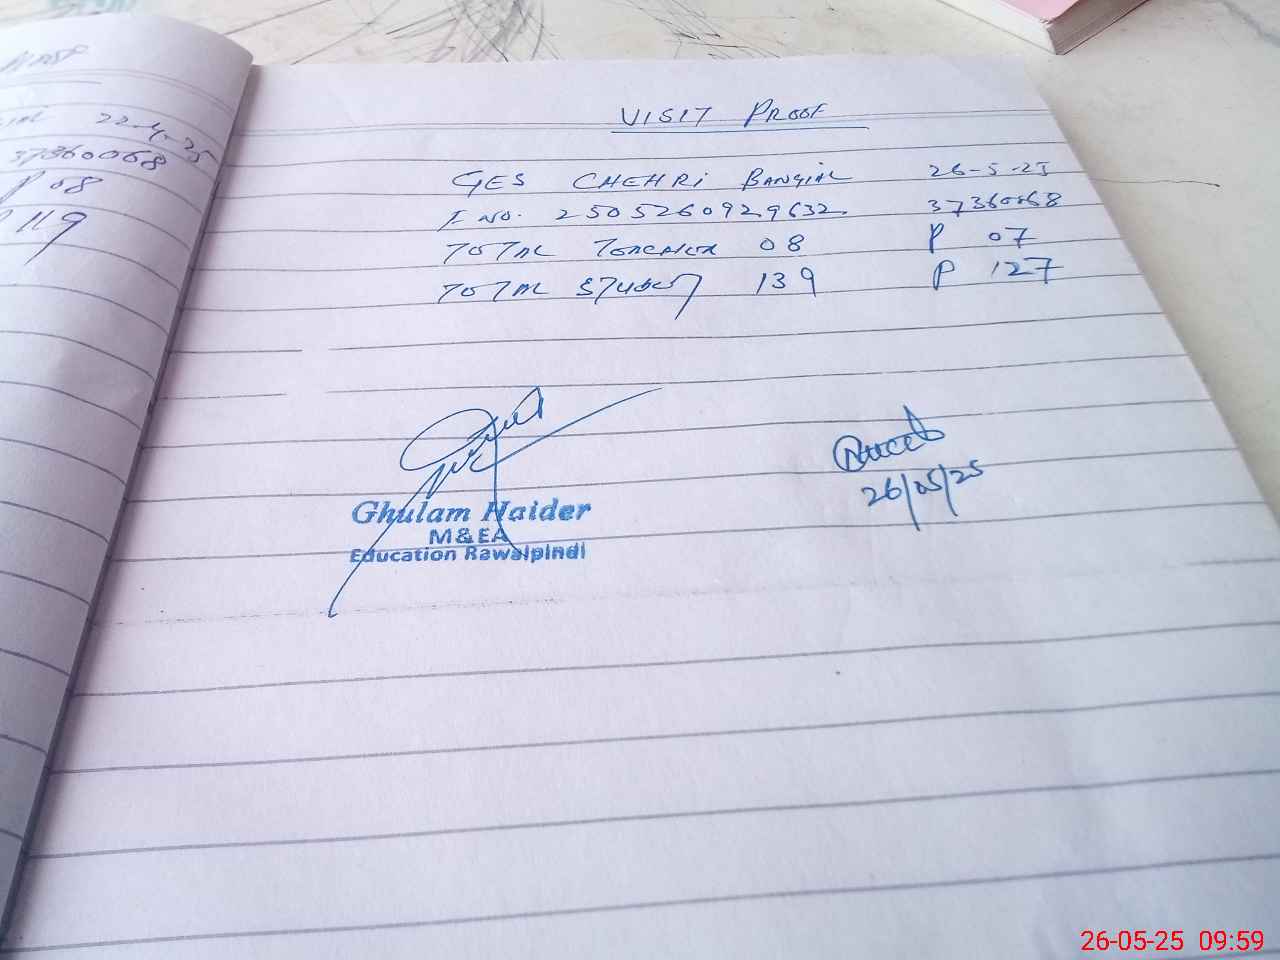 22-4-25
37360068
P 08
119
VISIT PROOF
GES CHEHRI BANGIAL 26-5-25
I NO. 2505260929632 37360068
TOTAL TEACHER 08 P 07
TOTAL STUDENT 139 P 127
26/05/25
Ghulam Haider
M&EA
Education Rawalpindi
26-05-25 09:59